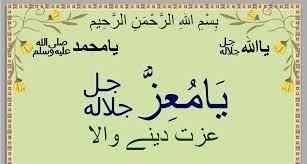 بِسْمِ اللهِ الرَّحْمٰنِ الرَّحِيْمِ
یااللہ جل جلالہ
یامحمد صلی اللہ علیہ وسلم
یَامُعِزُّ جل جلالہ
عزت دینے والا